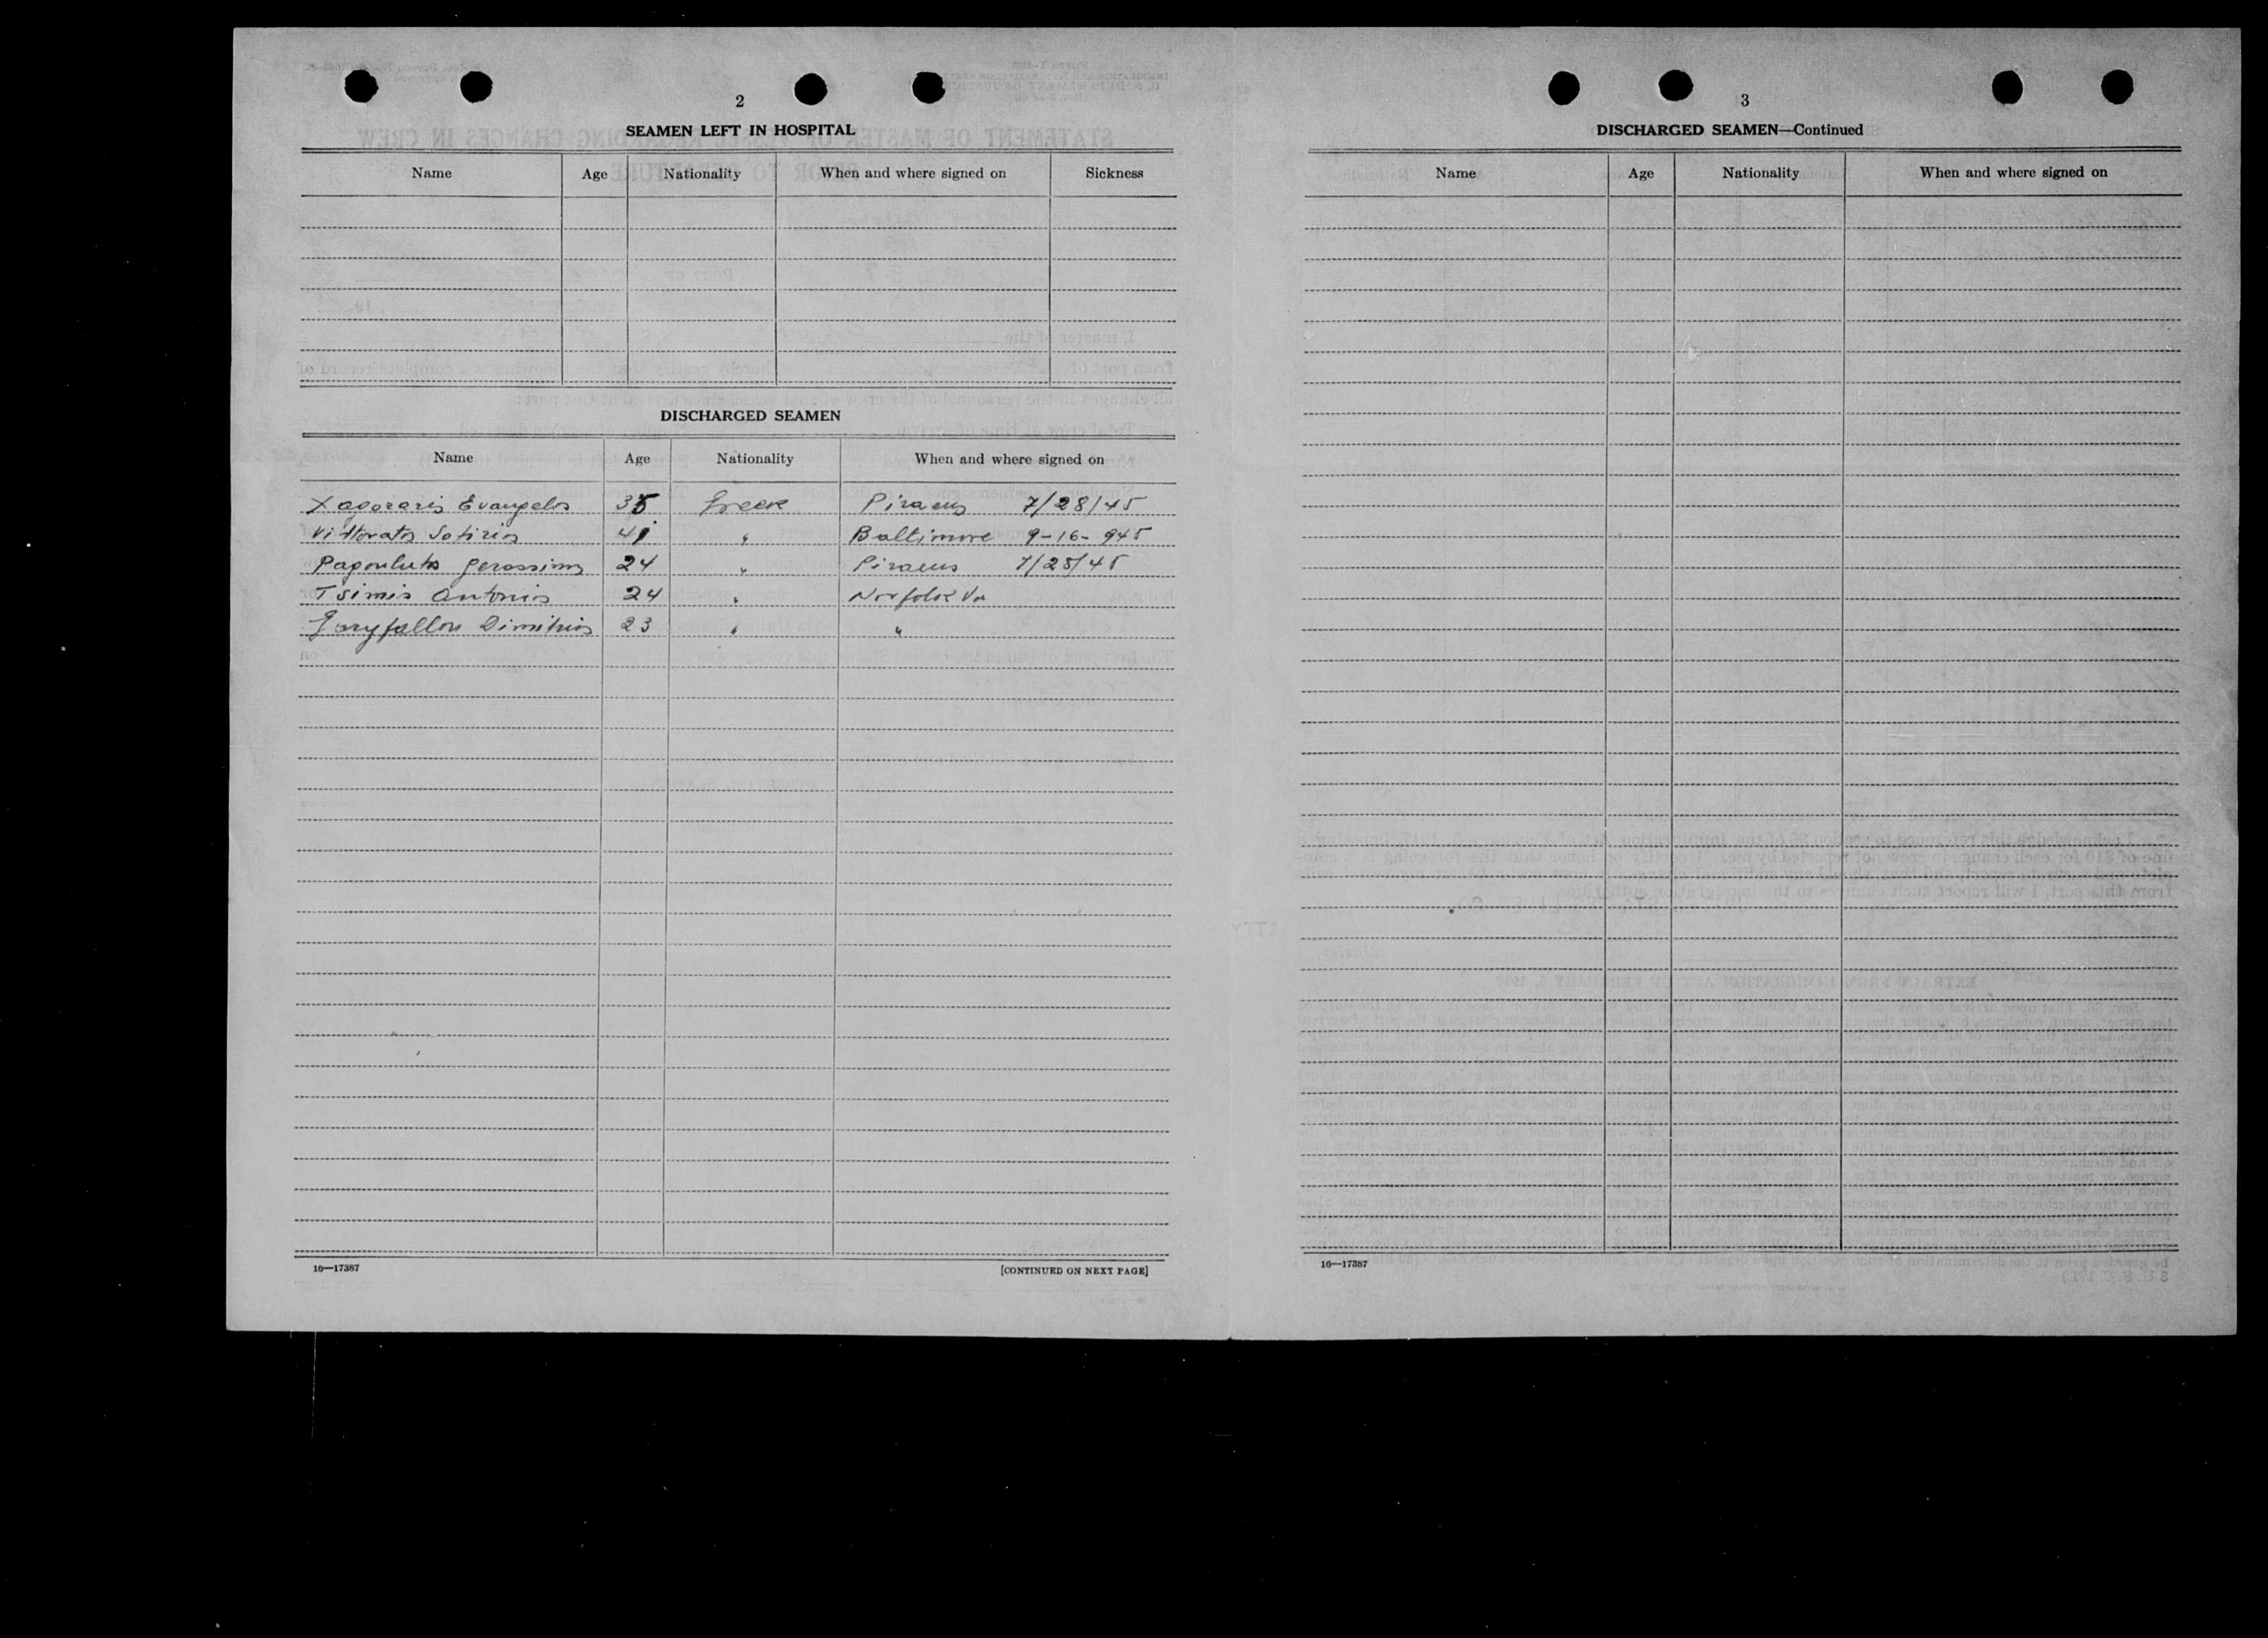 2
SEAMEN LEFT IN HOSPITAL
Name Age Nationality When and where signed on Sickness
DISCHARGED SEAMEN
Name Age Nationality When and where signed on
Xagoraris Evangelos 35 Greek Piraeus 7/28/45
Vittoratos Sotirios 41 " Baltimore 9-16-945
Gerassimos 24 " Piraeus 7/28/45
Tsimis Antonios 24 " Norfolk Va
Garyfallou Dimitrios 23 " "
16—17387
[CONTINUED ON NEXT PAGE]
3
DISCHARGED SEAMEN—Continued
Name Age Nationality When and where signed on
16—17387